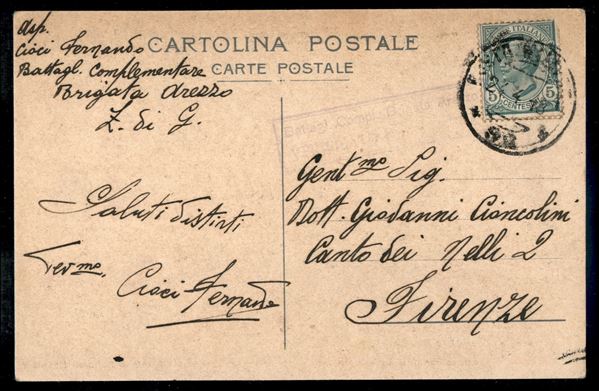 asp.
Cioci Fernando
Battagl. Complementare
Brigata Arezzo
Z. di G.
CARTOLINA POSTALE
CARTE POSTALE
5 CENTESIMI 5
98
Battagl. Compl.
Saluti distinti
Dev.mo
Cioci Fernando
Gent.mo Sig.
Dott. Giovanni Ciancolini
Canto dei Nelli 2
Firenze